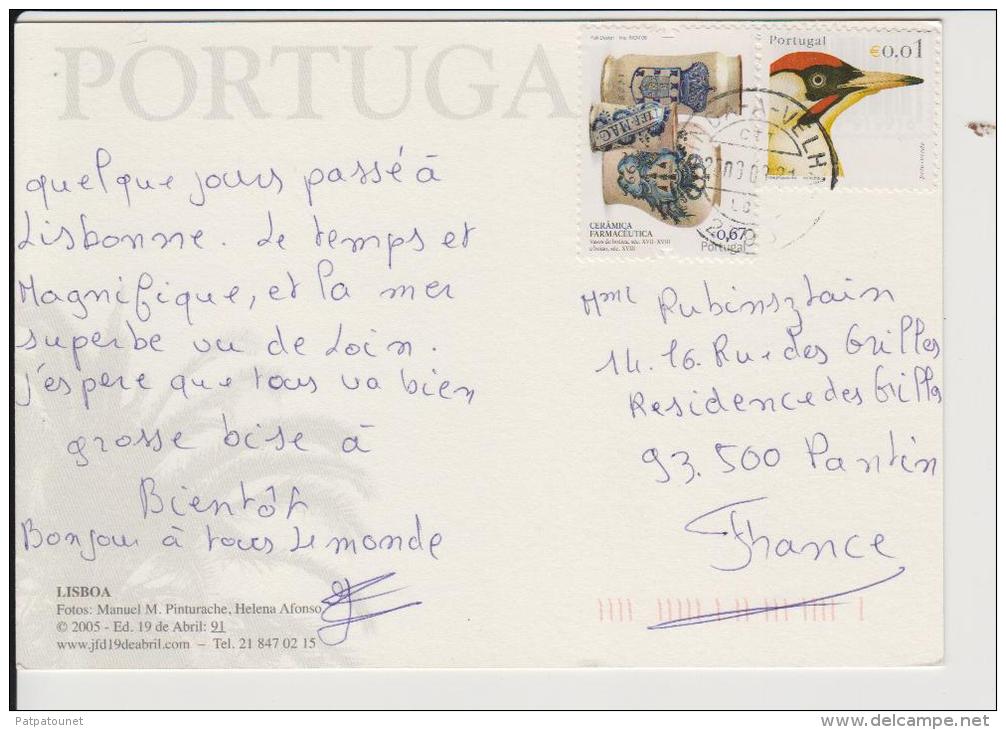 PORTUGA
Portugal
€0,01
CERÂMICA
FARMACÊUTICA
Vasos de botica, séc. XVII-XVIII
e boião, séc. XVIII
€0,67
Portugal
quelque jours passé à
Lisbonne. Le temps et
Magnifique, et la mer
superbe vu de Loin.
j'espere que tous va bien
grosse bise à
Bientôt
Bonjour à tous Le monde
Mme Rubinsztain
14.16. Rue des Grilles
Residence des Grilles
93.500 Pantin
France
LISBOA
Fotos: Manuel M. Pinturache, Helena Afonso
© 2005 - Ed. 19 de Abril: 91
www.jfd19deabril.com – Tel. 21 847 02 15
Patpatounet
www.delcampe.net